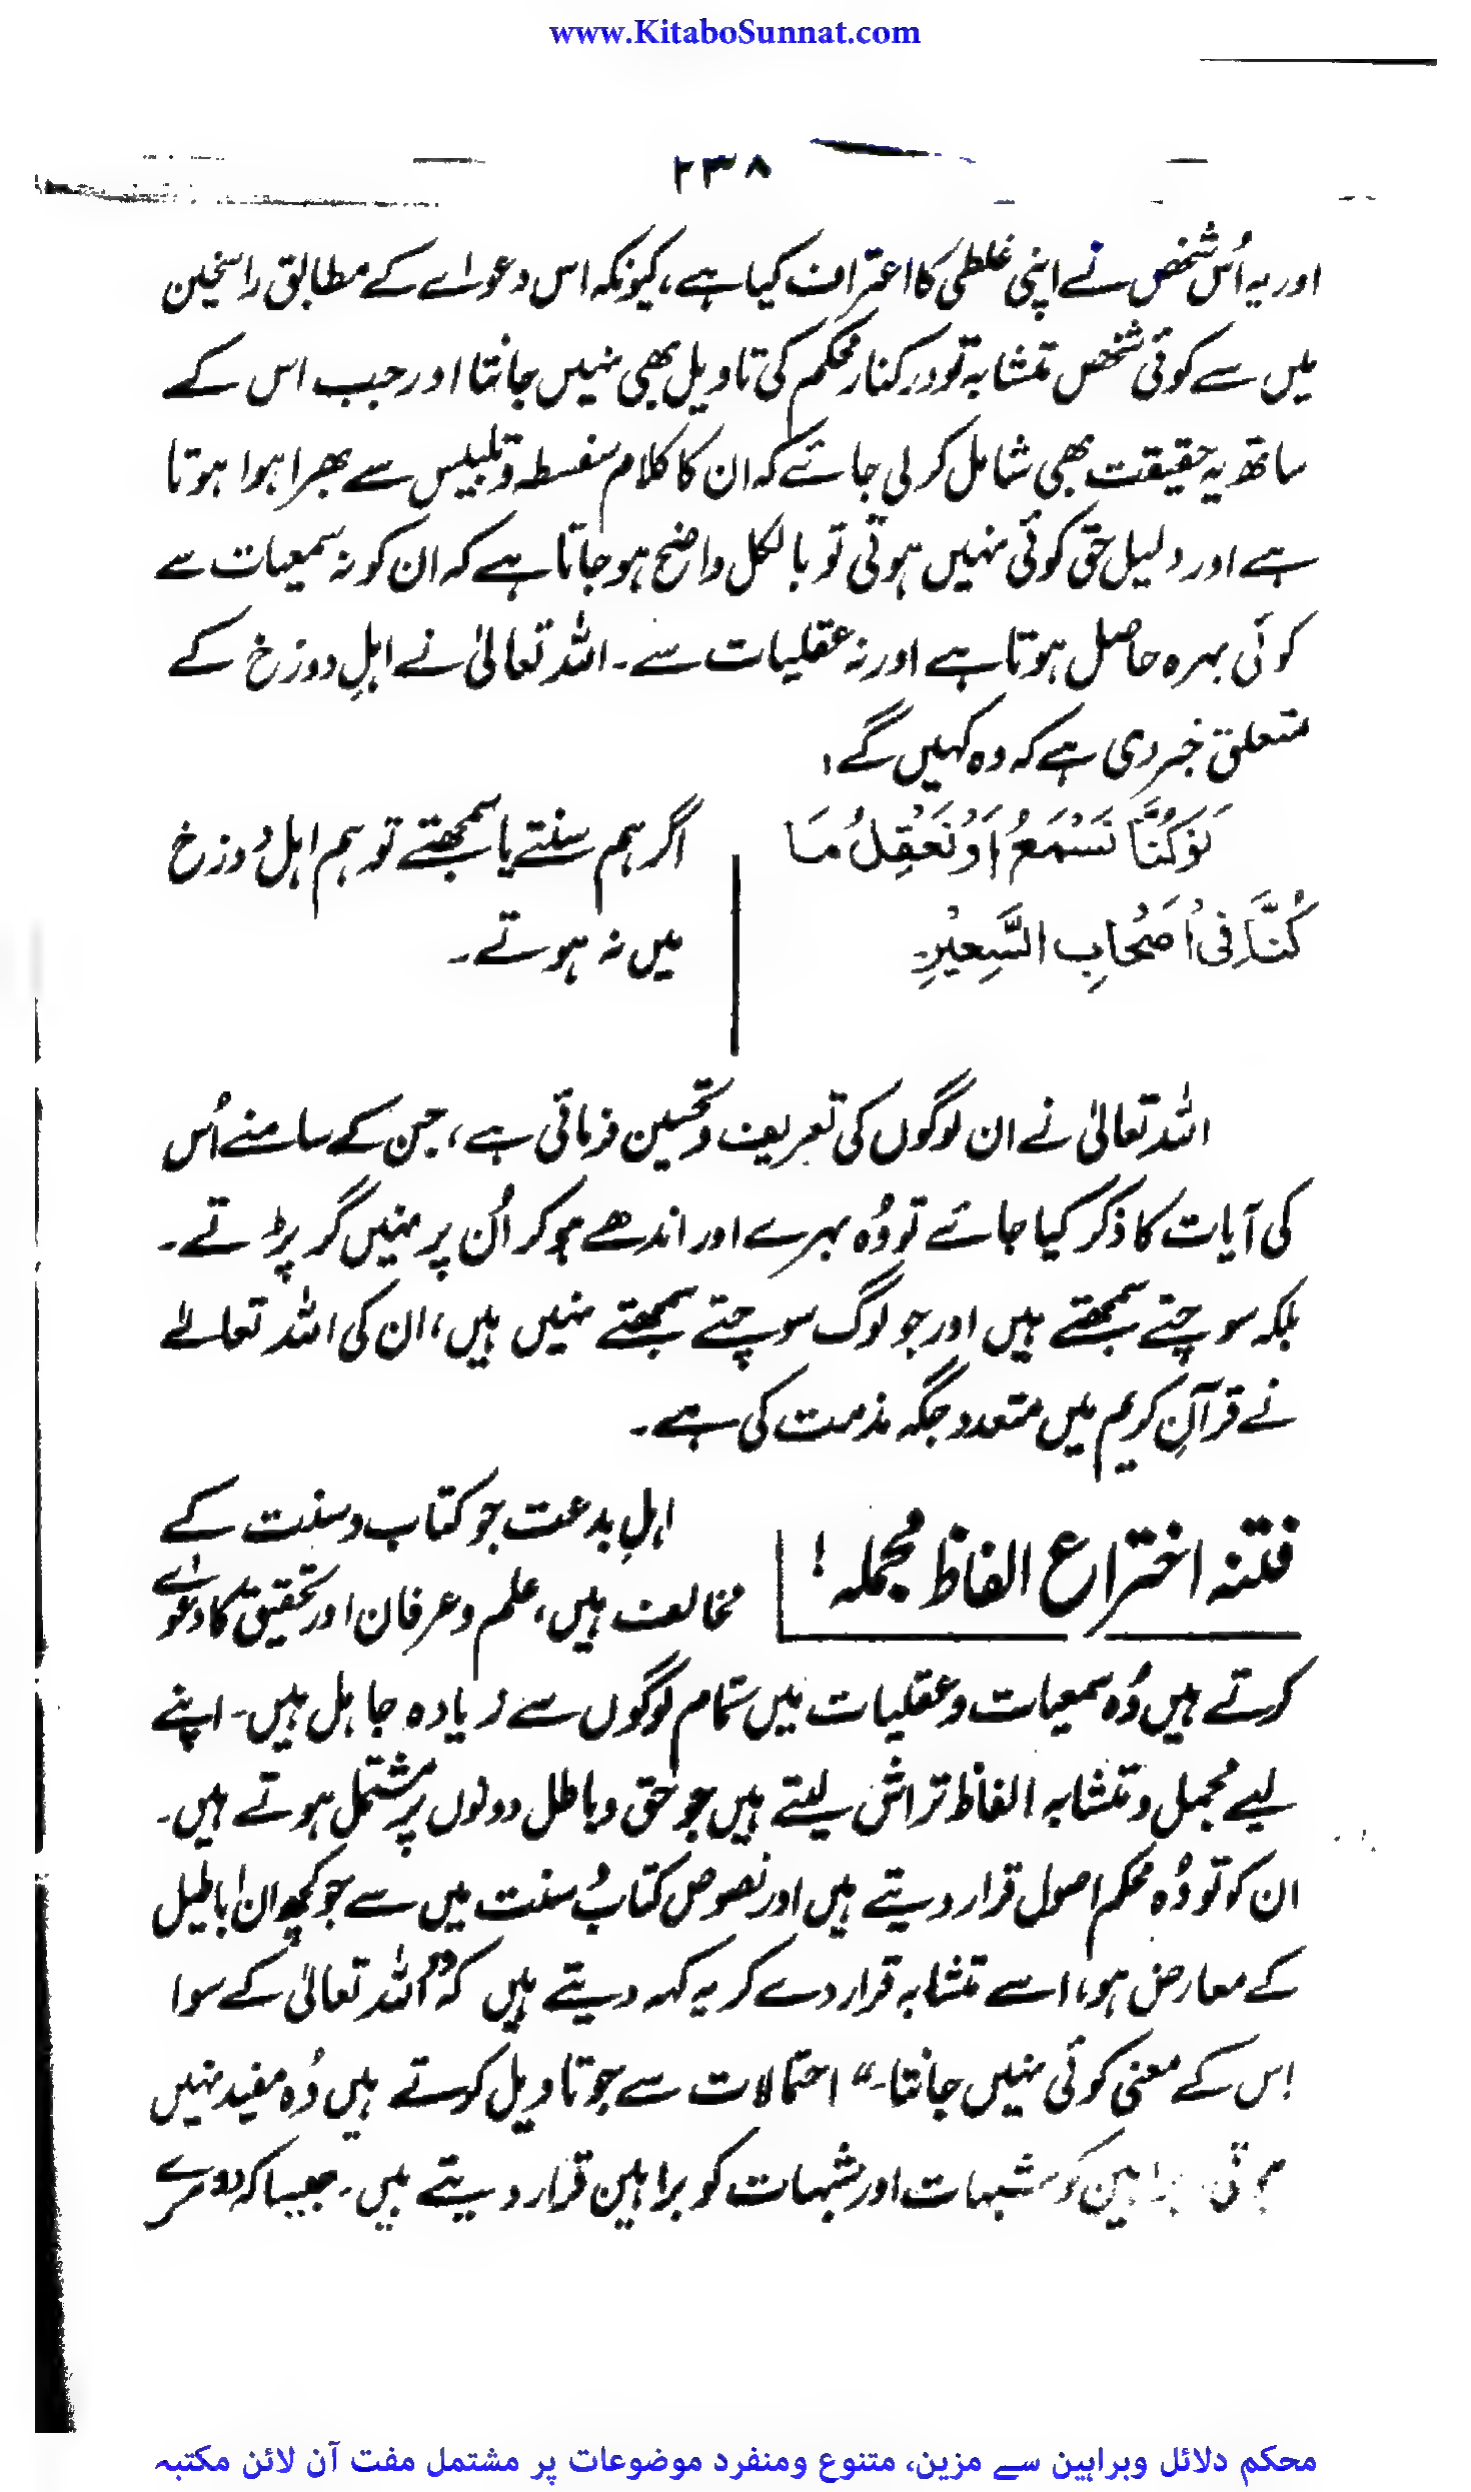 www.KitaboSunnat.com
۲۳۸
اور یہ اُس شخص نے اپنی غلطی کا اعتراف کیا ہے، کیونکہ اس دعوٰے کے مطابق راسخین
میں سے کوئی شخص متشابہ تو درکنار محکم کی تاویل بھی نہیں جانتا اور جب اس کے
ساتھ یہ حقیقت بھی شامل کر لی جائے کہ ان کا کلام سفسطہ و تلبیس سے بھرا ہوا ہوتا
ہے اور دلیل حق کوئی نہیں ہوتی تو بالکل واضح ہو جاتا ہے کہ ان کو نہ سمعیات سے
کوئی بہرہ حاصل ہوتا ہے اور نہ عقلیات سے۔ اللہ تعالیٰ نے اہلِ دوزخ کے
متعلق خبر دی ہے کہ وہ کہیں گے:
لَوْ كُنَّا نَسْمَعُ اَوْ نَعْقِلُ مَا
كُنَّا فِیْ اَصْحَابِ السَّعِيْرِ۔
اگر ہم سنتے یا سمجھتے تو ہم اہل دوزخ
میں نہ ہوتے۔
اللہ تعالیٰ نے ان لوگوں کی تعریف و تحسین فرمائی ہے، جن کے سامنے اُس
کی آیات کا ذکر کیا جائے تو وُہ بہرے اور اندھے ہو کر اُن پر نہیں گر پڑتے۔
بلکہ سوچتے سمجھتے ہیں اور جو لوگ سوچتے سمجھتے نہیں ہیں، ان کی اللہ تعالےٰ
نے قرآنِ کریم میں متعدد جگہ مذمت کی ہے۔
فتنہ اختراع الفاظ مُجملہ!
اہلِ بدعت جو کتاب و سنت کے
مخالف ہیں، علم و عرفان اور تحقیق کا دعوٰے
کرتے ہیں وُہ سمعیات و عقلیات میں تمام لوگوں سے زیادہ جاہل ہیں۔ اپنے
لیے مُجمل و متشابہ الفاظ تراش لیتے ہیں جو حق و باطل دونوں پر مشتمل ہوتے ہیں۔
ان کو تو وُہ محکم اصول قرار دیتے ہیں اور نصوص کتاب و سنت میں سے جو کچھ ان اباطیل
کے معارض ہو، اسے متشابہ قرار دے کر یہ کہہ دیتے ہیں کہ "اللہ تعالیٰ کے سوا
اِس کے معنی کوئی نہیں جانتا۔" احتمالات سے جو تاویل کرتے ہیں وُہ مفید نہیں
ہوتی۔ براہین کو شبہات اور شبہات کو براہین قرار دیتے ہیں۔ جیسا کہ دوسرے
محکم دلائل وبراہین سے مزین، متنوع ومنفرد موضوعات پر مشتمل مفت آن لائن مکتبہ